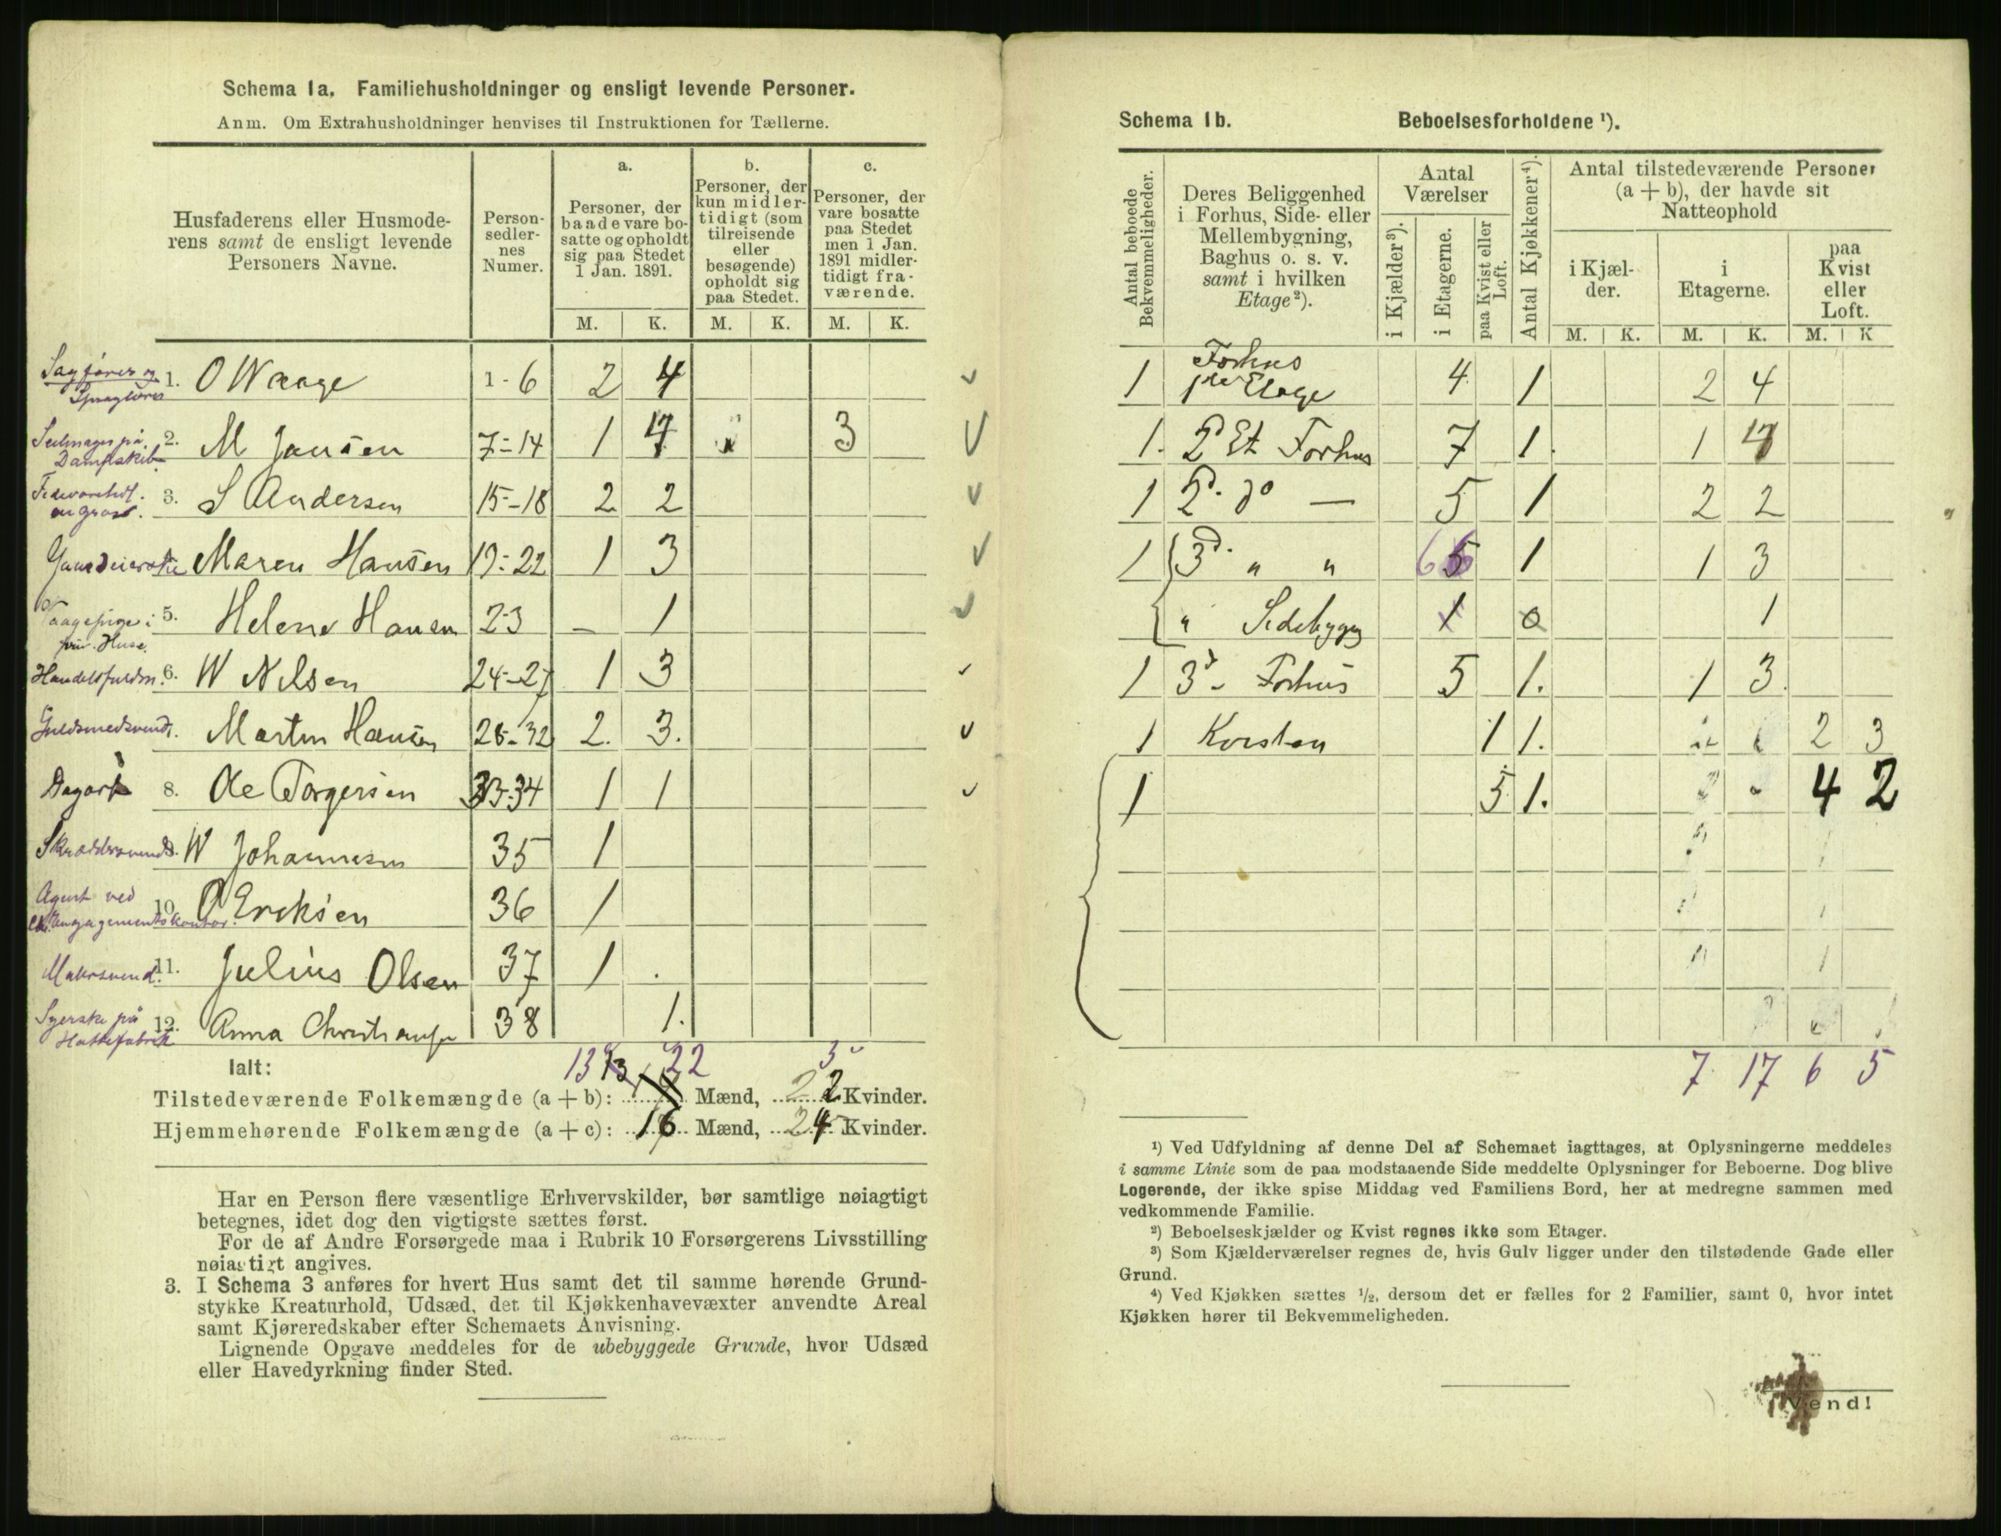 Schema 1a. Familiehusholdninger og ensligt levende Personer.
Anm. Om Extrahusholdninger henvises til Instruktionen for Tællerne.
Husfaderens eller Husmoderens samt de ensligt levende Personers Navne.
Personsedlernes Numer.
a.
Personer, der baade vare bosatte og opholdt sig paa Stedet 1 Jan. 1891.
b.
Personer, der kun midlertidigt (som tilreisende eller besøgende) opholdt sig paa Stedet.
c.
Personer, der vare bosatte paa Stedet men 1 Jan. 1891 midlertidigt fraværende.
M. K. M. K. M. K.
Sagfører og 1. O Waage 1-6 2 4
2. M Jansen 7-14 1 7 3
Dampskib
3. S Andersen 15-18 2 2
en gros.
Maren Hansen 19-22 1 3
5. Helene Hansen 23 - 1
priv. Huse.
Handelsfuldm. 6. W Nilsen 24-27 1 3
Guldsmedsvend. Martin Hansen 28-32 2. 3.
8. Ole Torgersen 33-34 1 1
Skræddersvend W Johannesen 35 1
Agent ved
10. O Ericksen 36 1
Malersvend. 11. Julius Olsen 37 1 .
Syerske på 12. Anna 38 1.
Hattefabrik
Ialt:
13 13 22 3
Tilstedeværende Folkemængde (a + b): Mænd, 22 Kvinder.
Hjemmehørende Folkemængde (a + c): 16 Mænd, 24 Kvinder.
Har en Person flere væsentlige Erhvervskilder, bør samtlige nøiagtigt
betegnes, idet dog den vigtigste sættes først.
For de af Andre Forsørgede maa i Rubrik 10 Forsørgerens Livsstilling
nøiagtigt angives.
3. I Schema 3 anføres for hvert Hus samt det til samme hørende Grund-
stykke Kreaturhold, Udsæd, det til Kjøkkenhavevæxter anvendte Areal
samt Kjøreredskaber efter Schemaets Anvisning.
Lignende Opgave meddeles for de ubebyggede Grunde, hvor Udsæd
eller Havedyrkning finder Sted.
Schema 1b. Beboelsesforholdene ¹).
Antal beboede Bekvemmeligheder.
Deres Beliggenhed i Forhus, Side- eller Mellembygning, Baghus o. s. v. samt i hvilken Etage ²).
Antal Værelser
i Kjælder ³).
i Etagerne.
paa Kvist eller Loft.
Antal Kjøkkener ⁴).
Antal tilstedeværende Personer (a + b), der havde sit Natteophold
i Kjælder.
i Etagerne.
paa Kvist eller Loft.
M. K. M. K. M. K
1 Forhus 1ste Etage 4 1 2 4
1. 2d Et Forhus 7 1. 1 7
1 2d. do — 5 1 2 2
1 3d. " " 6 1 1 3
" Sidebygg 1 0 1
1 3d Forhus 5 1. 1 3.
1 Kvisten 1 1. 2 3
1 5 1. 4 2
7 17 6 5
¹) Ved Udfyldning af denne Del af Schemaet iagttages, at Oplysningerne meddeles
i samme Linie som de paa modstaaende Side meddelte Oplysninger for Beboerne. Dog blive
Logerende, der ikke spise Middag ved Familiens Bord, her at medregne sammen med
vedkommende Familie.
²) Beboelseskjælder og Kvist regnes ikke som Etager.
³) Som Kjælderværelser regnes de, hvis Gulv ligger under den tilstødende Gade eller
Grund.
⁴) Ved Kjøkken sættes ¹/₂, dersom det er fælles for 2 Familier, samt 0, hvor intet
Kjøkken hører til Bekvemmeligheden.
Vend!